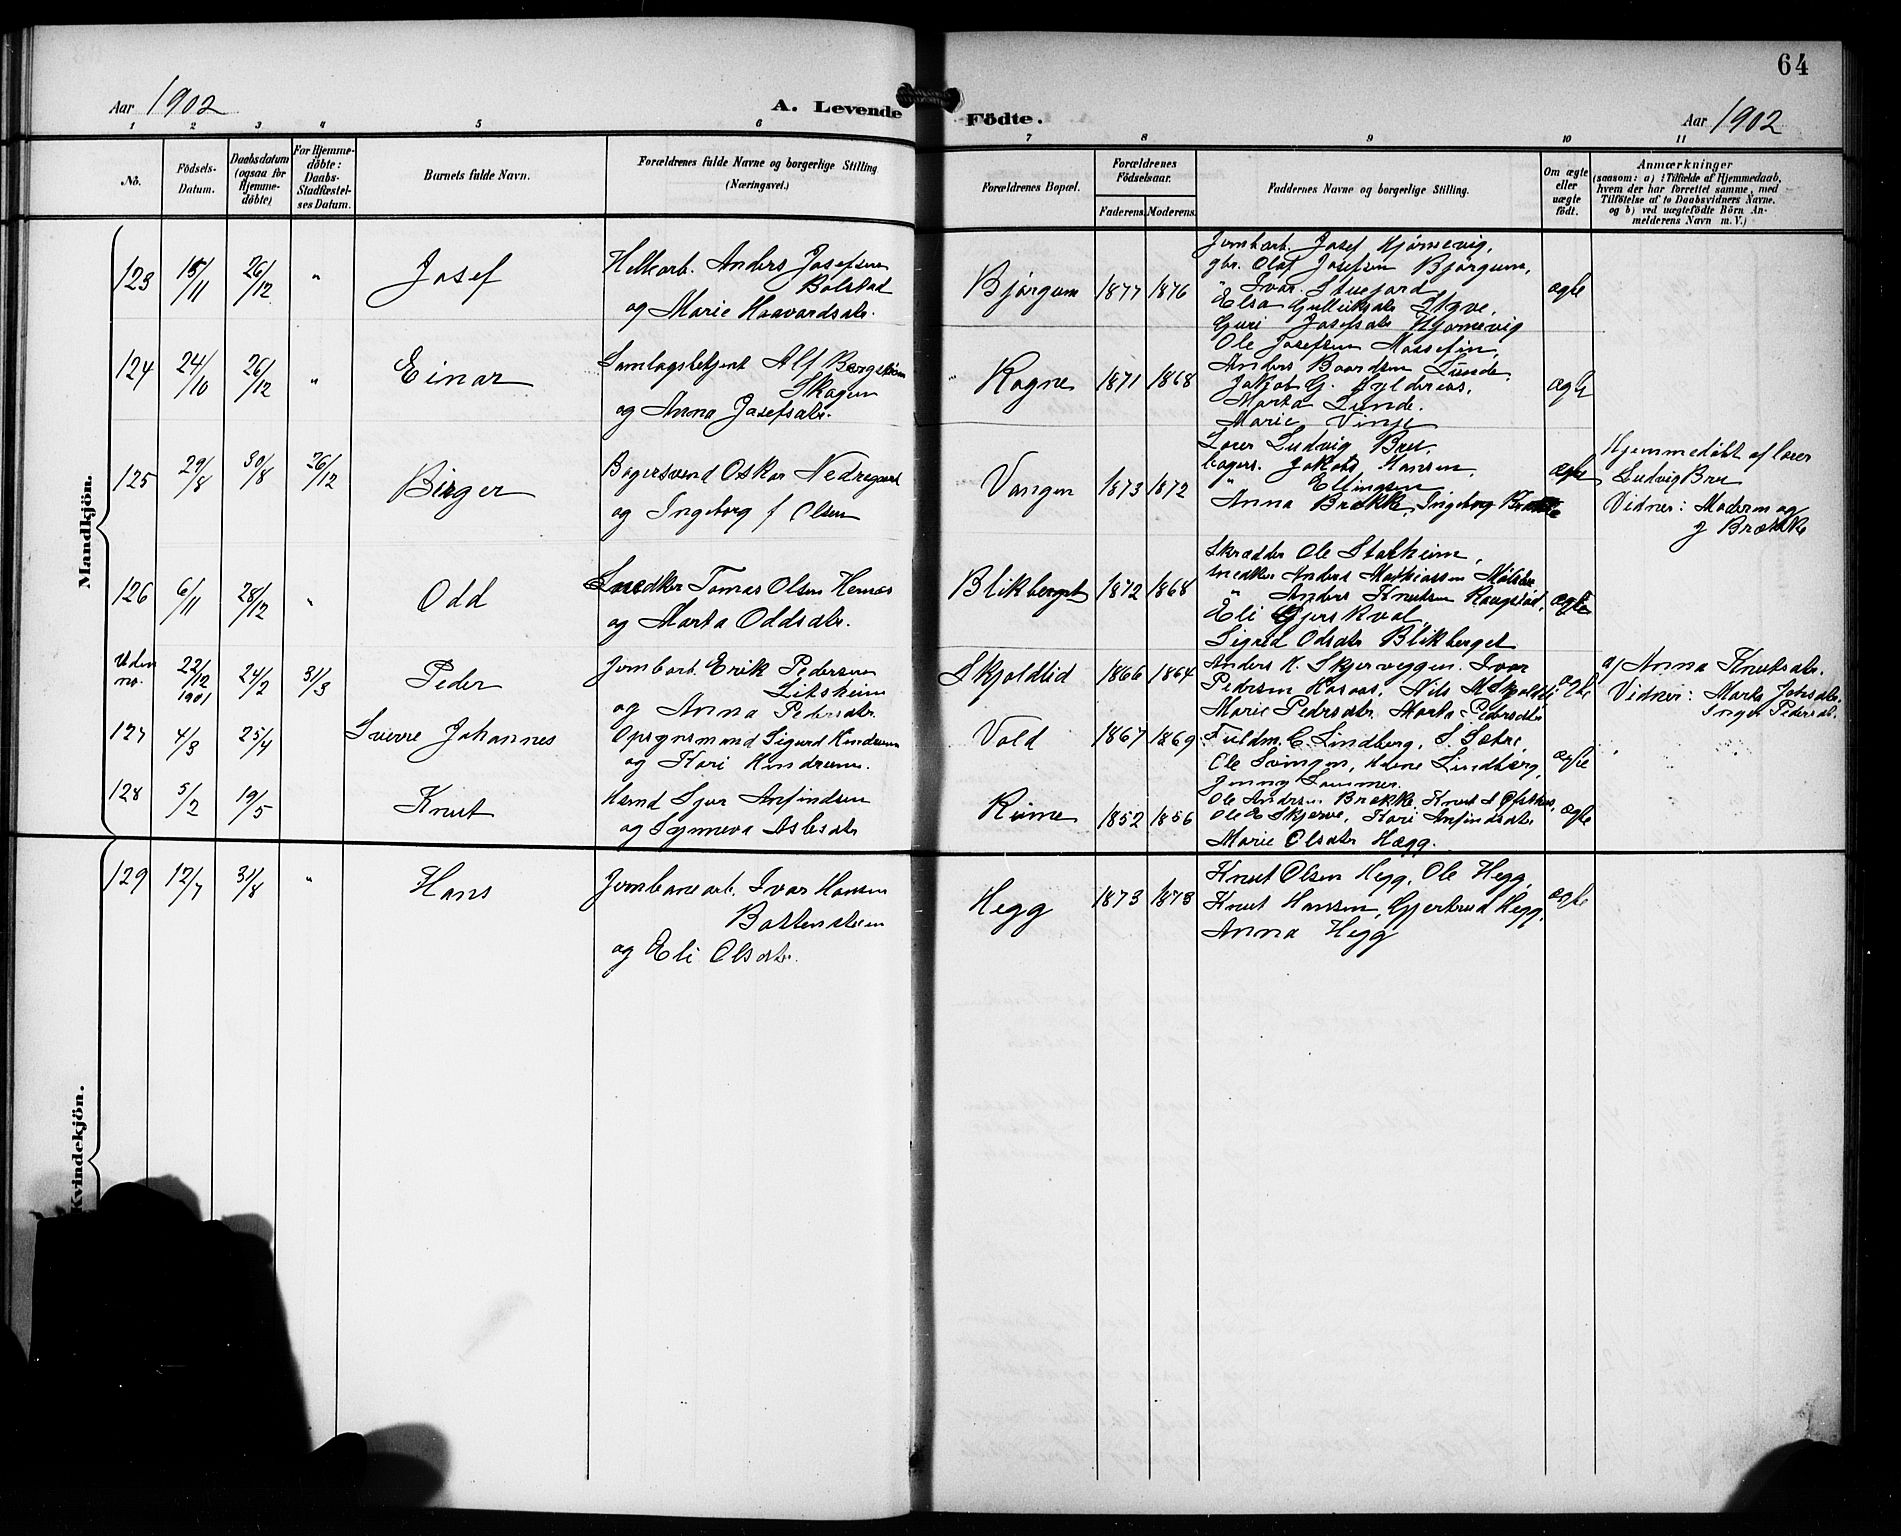 64
Aar 1902
A. Levende
Födte.
Aar 1902
1 2 3 4 5 6 7 8 9 10 11
No.
Födsels-
Datum.
Daabsdatum
(ogsaa for
Hjemme-
döbte)
For Hjemme-
döbte:
Daabs-
Stadfæstel-
ses Datum.
Barnets fulde Navn.
Forældrenes fulde Navne og borgerlige Stilling
(Næringsvei.)
Forældrenes Bopæl.
Forældrenes
Födselsaar.
Faderens. Moderens.
Faddernes Navne og borgerlige Stilling.
Om ægte
eller
uægte
födt.
Anmærkninger
(saasom: a) i Tilfælde af Hjemmedaab,
hvem der har forrettet samme, med
Tilföielse af to Daabsvidners Navne.
og b) ved uægtefödte Börn An-
melderens Navn m. V.)
Mandkjön.
123 15/11 26/12 "
Josef
Anders Josefsen
Bolstad
og Marie Haavardsdtr.
Bjørgum
1877 1876
Jernbarb. Josef Kjørnevig,
gbr. Olaf Josefsen Bjørgum,
" Ivar
Elsa Gulleiksdtr
Guri Josefsdtr Kjørnevig
ægte
124 24/10 26/12 "
Einar
Samlagsbetjent Alf
og Anna Josefsdtr.
Rogne
1871 1868
Ole Josefsen
Anders Baardsen Lunde,
Jakob G.
Marta Lunde.
Marie Vinje
ægte
125 29/8 30/8 26/12
Birger
Bagersvend Oskar
og Ingeborg f Olsen
Vangen
1873 1872
Lærer Ludvig Bru,
bagers. Jakob Hansen
" Ellingsen
Anna Brække, Ingeborg
ægte
Hjemmedøbt af lærer
Ludvig Bru
Vidner: Moderen og
J Brække
126 6/11 28/12 "
Odd
Snedker Tomas Olsen Hernes
og Marta Oddsdtr.
Blikberget
1872 1868
Skrædder Ole Stalheim,
snedker Anders Mathiassen
" Anders Knutsen
Eli Gjerskval
Sigrid Odsdtr Blikberget
ægte
Uden
no.
22/12
1901
24/2 31/3
Peder
Jernbarb. Erik Pedersen
og Anna Pedersdtr.
Skjoldlid
1866 1864
Anders K. Skjerveggen. Ivar
Pedersen Nils
Marie Pedersdtr. Marta Pedersdtr
ægte
a) Anna Knutsdtr.
Vidner: Marta
Inger Pedersdt.
127 4/3 25/4
Sverre Johannes
Opsynsmand Sigurd Kindrem
og Kari Kindrem.
Vold
1867 1869
Fuldm. C. Lindberg, S. Sætre,
Ole Svingen, Lindberg,
Jenny
ægte
128 5/2 19/5
Knut
Hsmd Sjur Anfindsen
og Synneva Aslesdtr
Rime
1852 1856
Ole Andrsn Brække, Knut S
Ole Skjerve, Kari Anfindsdtr
Marie Olsdtr Hægg.
ægte
Kvindekjön.
129 12/7 31/8 "
Hans
Jernbanearb. Ivar Hansen
og Eli Olsdtr.
Hegg
1873 1873
Knut Olsen Hegg, Ole Hegg,
Knut Hansen, Gjertrud Hegg,
Anna Hegg
ægte